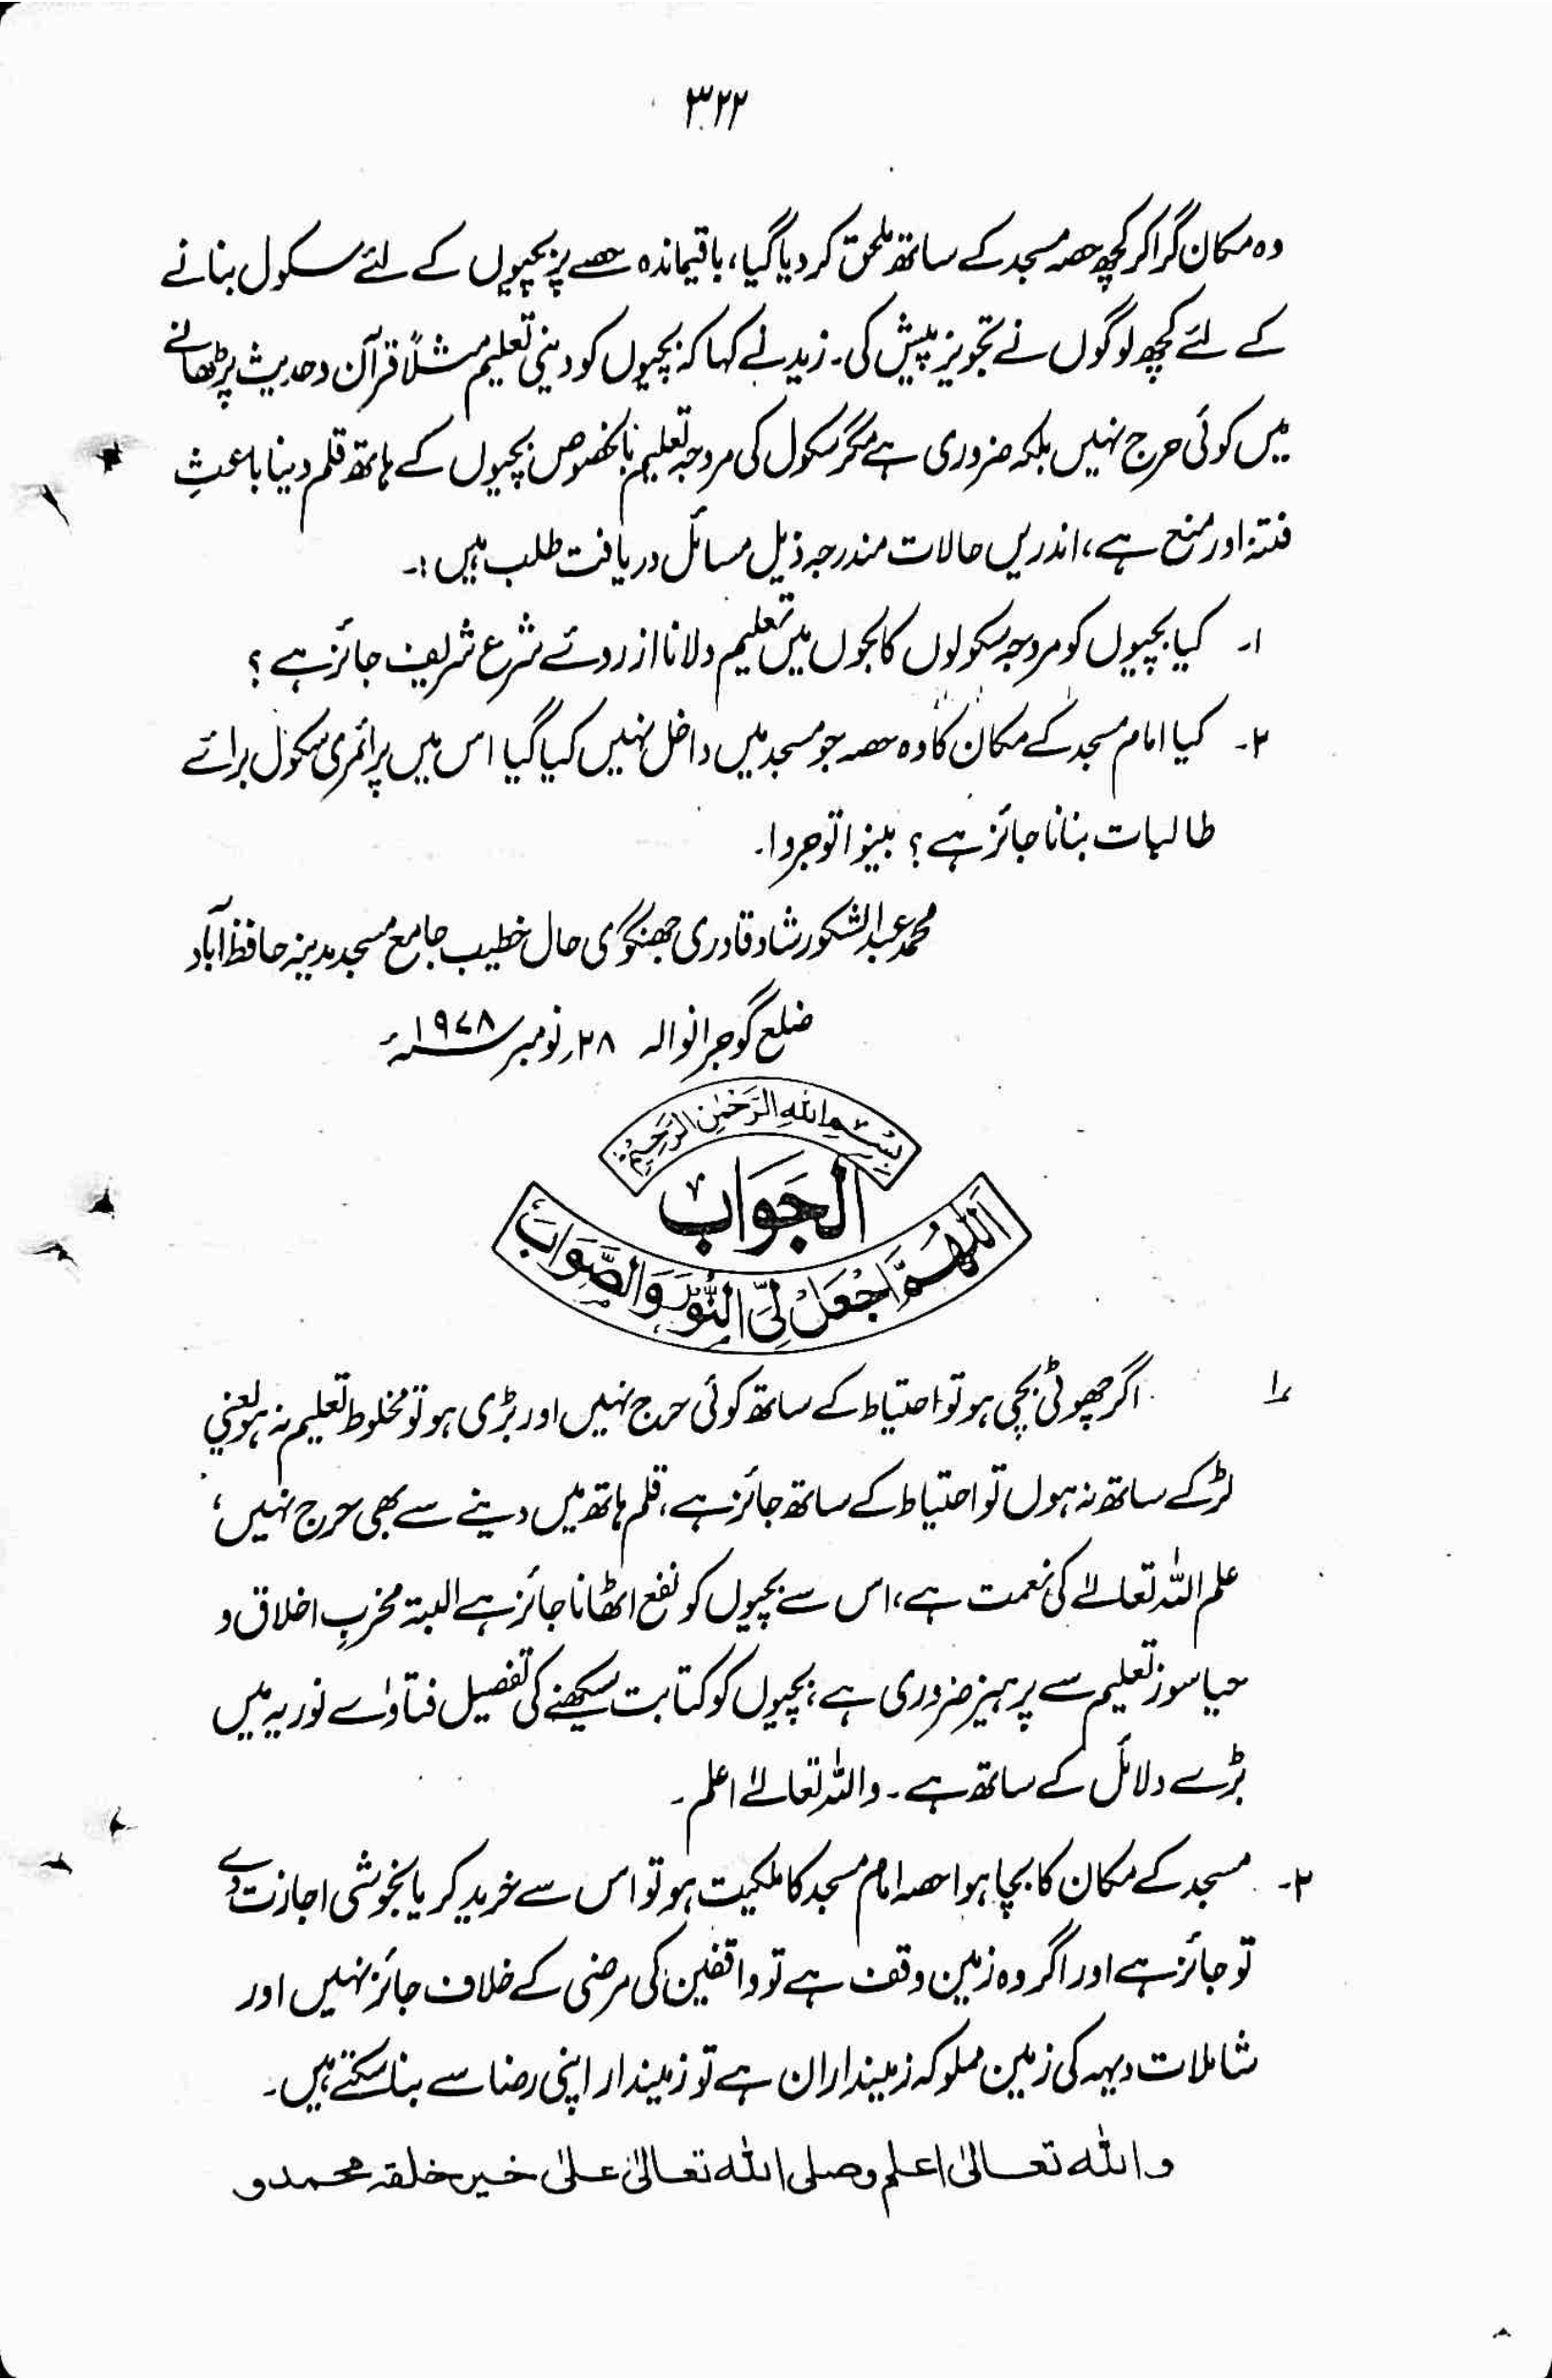 ۳۲۲
وہ مکان گرا کر کچھ حصہ مسجد کے ساتھ ملحق کر دیا گیا، باقیماندہ حصے پر بچیوں کے لئے سکول بنانے
کے لئے کچھ لوگوں نے تجویز پیش کی۔ زید نے کہا کہ بچیوں کو دینی تعلیم مثلاً قرآن و حدیث پڑھانے
میں کوئی حرج نہیں بلکہ ضروری ہے مگر سکول کی مروجہ تعلیم بالخصوص بچیوں کے ہاتھ قلم دینا باعثِ
فتنہ اور منع ہے، اندریں حالات مندرجہ ذیل مسائل دریافت طلب ہیں :۔
۱۔ کیا بچیوں کو مروجہ سکولوں کالجوں میں تعلیم دلانا از روئے شرع شریف جائز ہے ؟
۲۔ کیا امام مسجد کے مکان کا وہ حصہ جو مسجد میں داخل نہیں کیا گیا اس میں پرائمری سکول برائے
طالبات بنانا جائز ہے ؟ بینوا توجروا۔
محمد عبد الشکور شاد قادری جھنگوی حال خطیب جامع مسجد مدینہ حافظ آباد
ضلع گوجرانوالہ ۲۸؍ نومبر ۱۹۷۸ء
بِسْمِ اللهِ الرَّحْمٰنِ الرَّحِيْمِ
الجَوَابُ
اَللّٰهُمَّ اجْعَلْ لِيَ النُّوْرَ وَالصَّوَابَ
۱ اگر چھوٹی بچی ہو تو احتیاط کے ساتھ کوئی حرج نہیں اور بڑی ہو تو مخلوط تعلیم نہ ہو یعنی
لڑکے ساتھ نہ ہوں تو احتیاط کے ساتھ جائز ہے، قلم ہاتھ میں دینے سے بھی حرج نہیں،
علم اللہ تعالےٰ کی نعمت ہے، اس سے بچیوں کو نفع اٹھانا جائز ہے البتہ مخربِ اخلاق و
حیا سوز تعلیم سے پرہیز ضروری ہے، بچیوں کو کتابت سیکھنے کی تفصیل فتاوٰے نوریہ میں
بڑے دلائل کے ساتھ ہے ۔ واللہ تعالےٰ اعلم ۔
۲۔ مسجد کے مکان کا بچا ہوا حصہ امام مسجد کا ملکیت ہو تو اس سے خرید کر یا بخوشی اجازت دے
تو جائز ہے اور اگر وہ زمین وقف ہے تو واقفین کی مرضی کے خلاف جائز نہیں اور
شاملات دیہہ کی زمین مملوکہ زمینداران ہے تو زمیندار اپنی رضا سے بنا سکتے ہیں۔
والله تعالىٰ اعلم وصلى الله تعالىٰ علىٰ خير خلقه محمد و